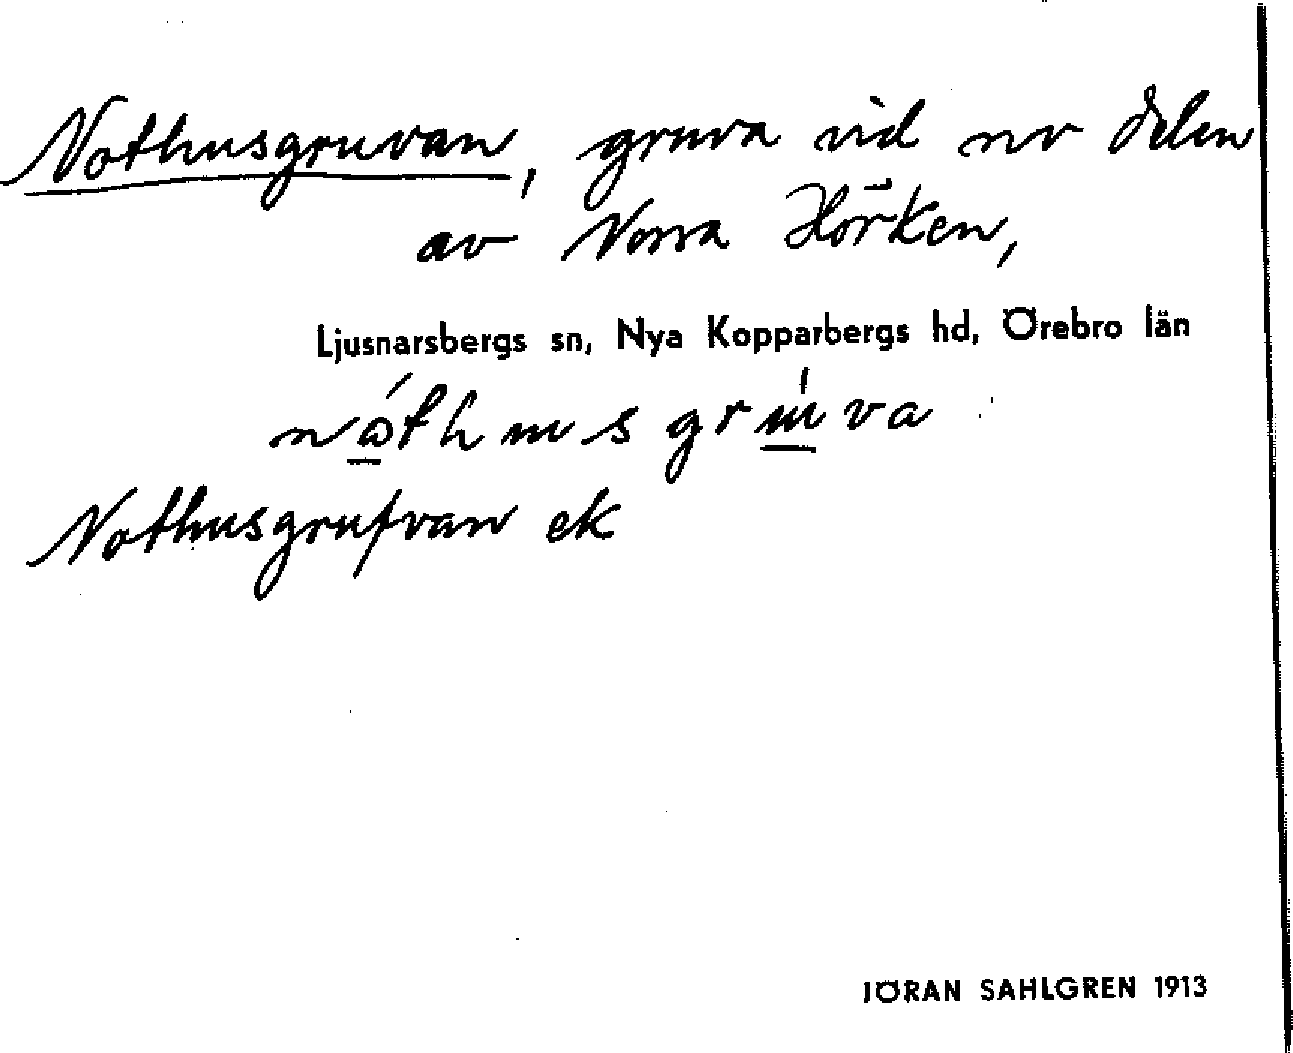 Nothusgruvan, gruva vid nv delen
av Norra Hörken,
Ljusnarsbergs sn, Nya Kopparbergs hd, Örebro län
Nothusgrufvan ek
JÖRAN SAHLGREN 1913